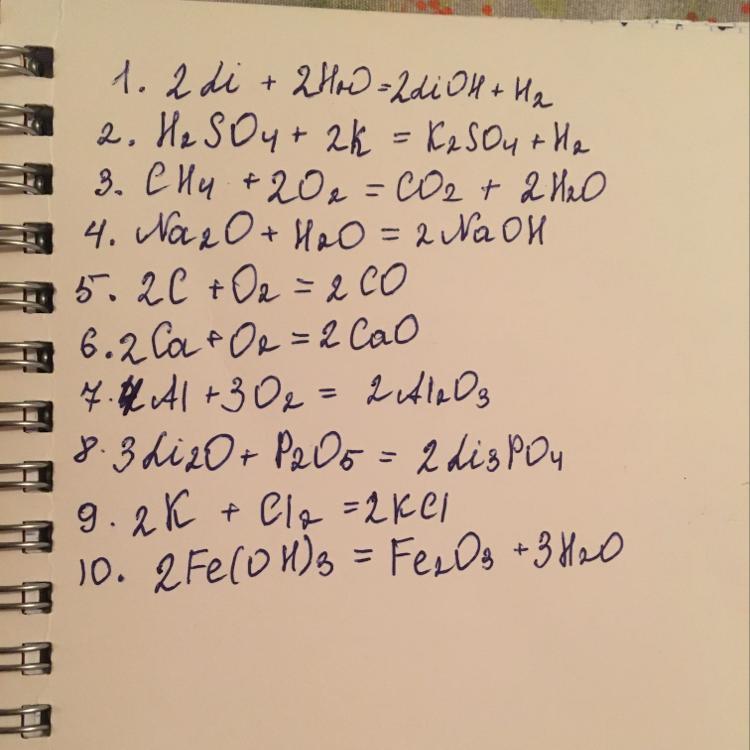 1. 2Li + 2H2O = 2LiOH + H2
2. H2SO4 + 2K = K2SO4 + H2
3. CH4 + 2O2 = CO2 + 2H2O
4. Na2O + H2O = 2NaOH
5. 2C + O2 = 2CO
6. 2Ca + O2 = 2CaO
7. 4Al + 3O2 = 2Al2O3
8. 3Li2O + P2O5 = 2Li3PO4
9. 2K + Cl2 = 2KCl
10. 2Fe(OH)3 = Fe2O3 + 3H2O